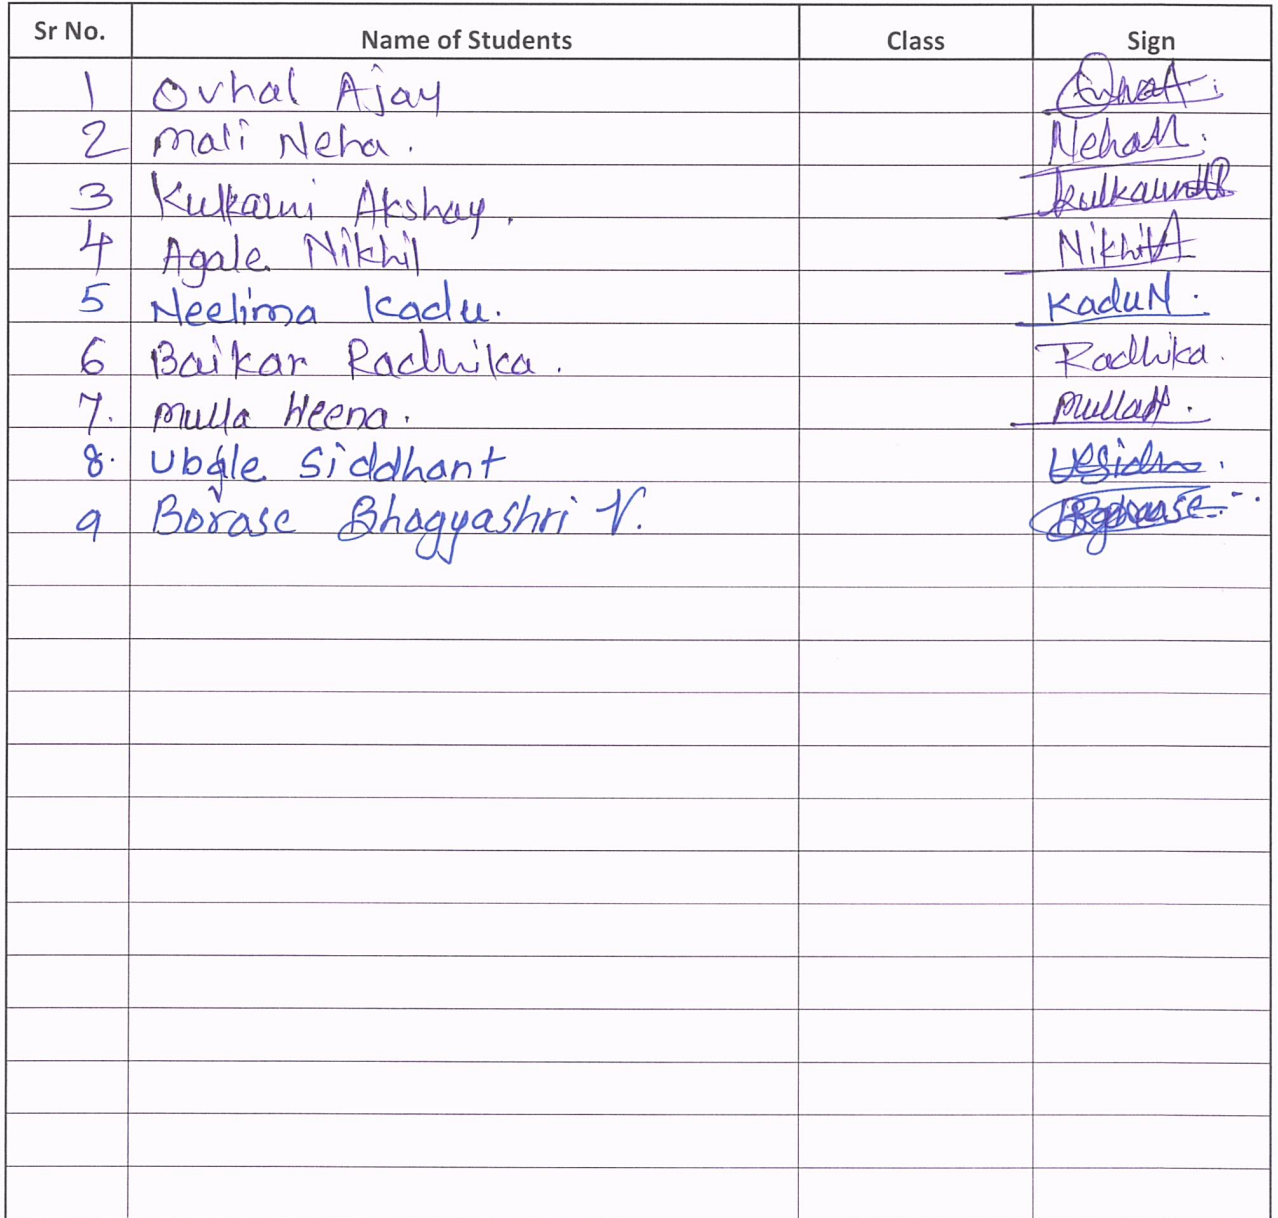 Sr No. Name of Students Class Sign
1 Ovhal Ajay
2 Mali Neha. NehaM.
3 Kulkarni Akshay.
4 Agale Nikhil NikhilA
5 Neelima Kadu. KaduN.
6 Baikar Radhika. Radhika.
7. Mulla Heena. MullaH.
8. Ubale Siddhant
9 Borase Bhagyashri V.